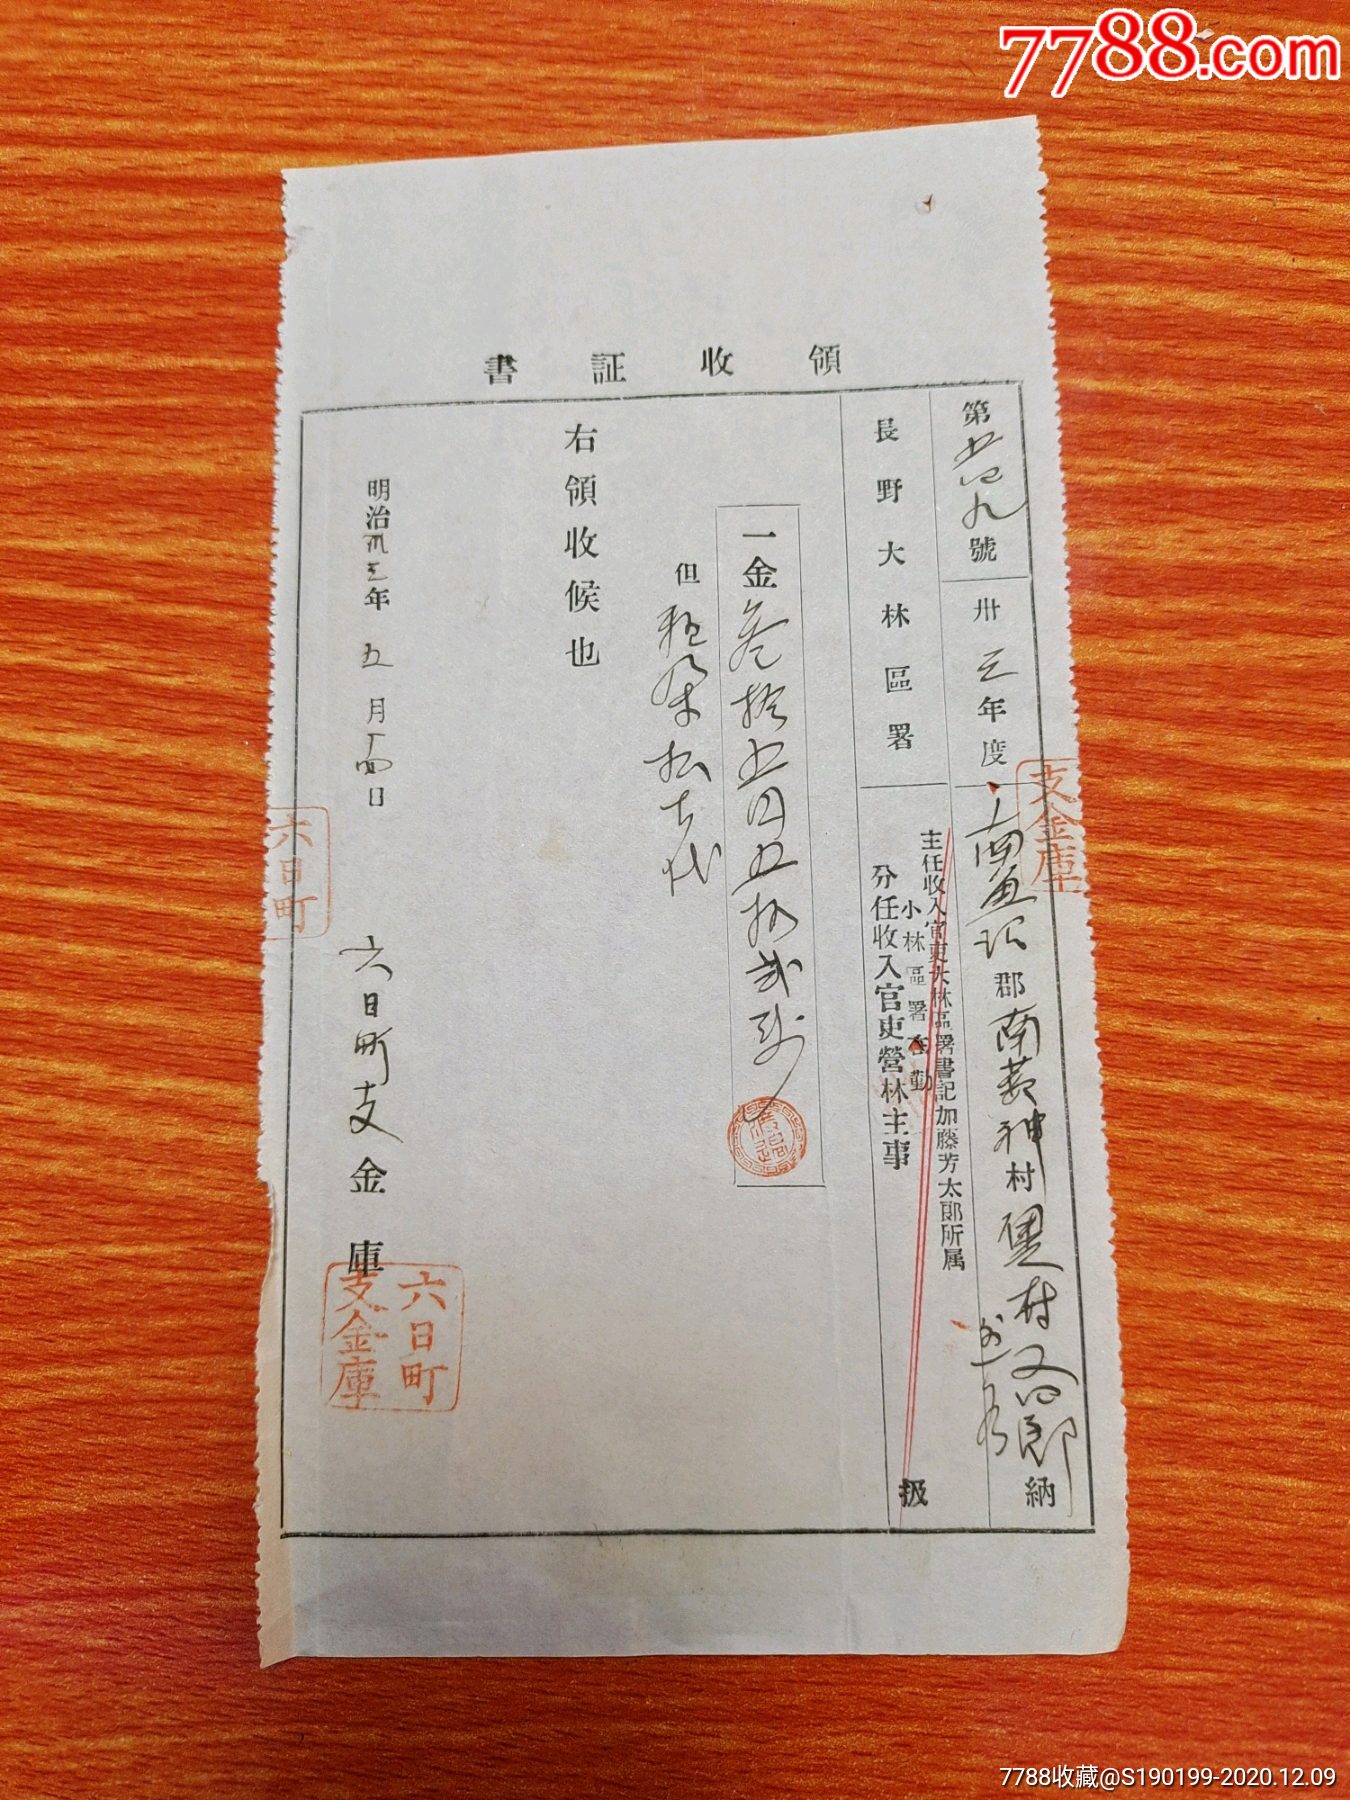 7788.com
領收証書
第五四九號
卅三年度
南魚沼郡南蒲神村 村又四郎 納
長野大林區署
主任收入官吏大林區署書記加藤芳太郎所属
小林區署在勤
分任收入官吏營林主事
扱
一金參拾五円五拾弐戋
但
右領收候也
明治卅三年五月十四日
六日町支金庫
六日町支金庫
支金庫
六日町
7788收藏@S190199-2020.12.09